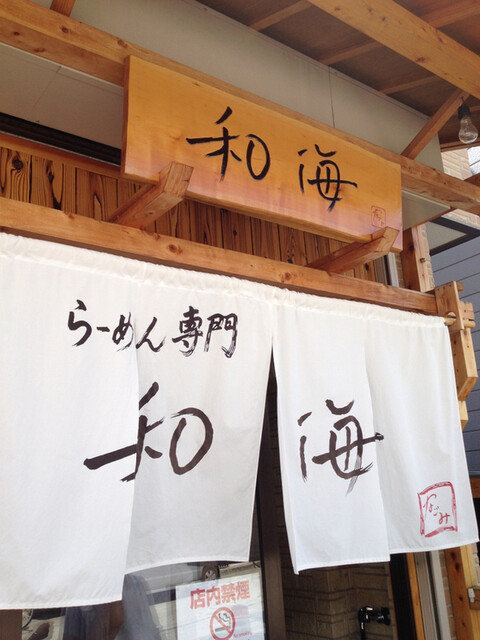 和海
らーめん専門
和海
なごみ
店内禁煙